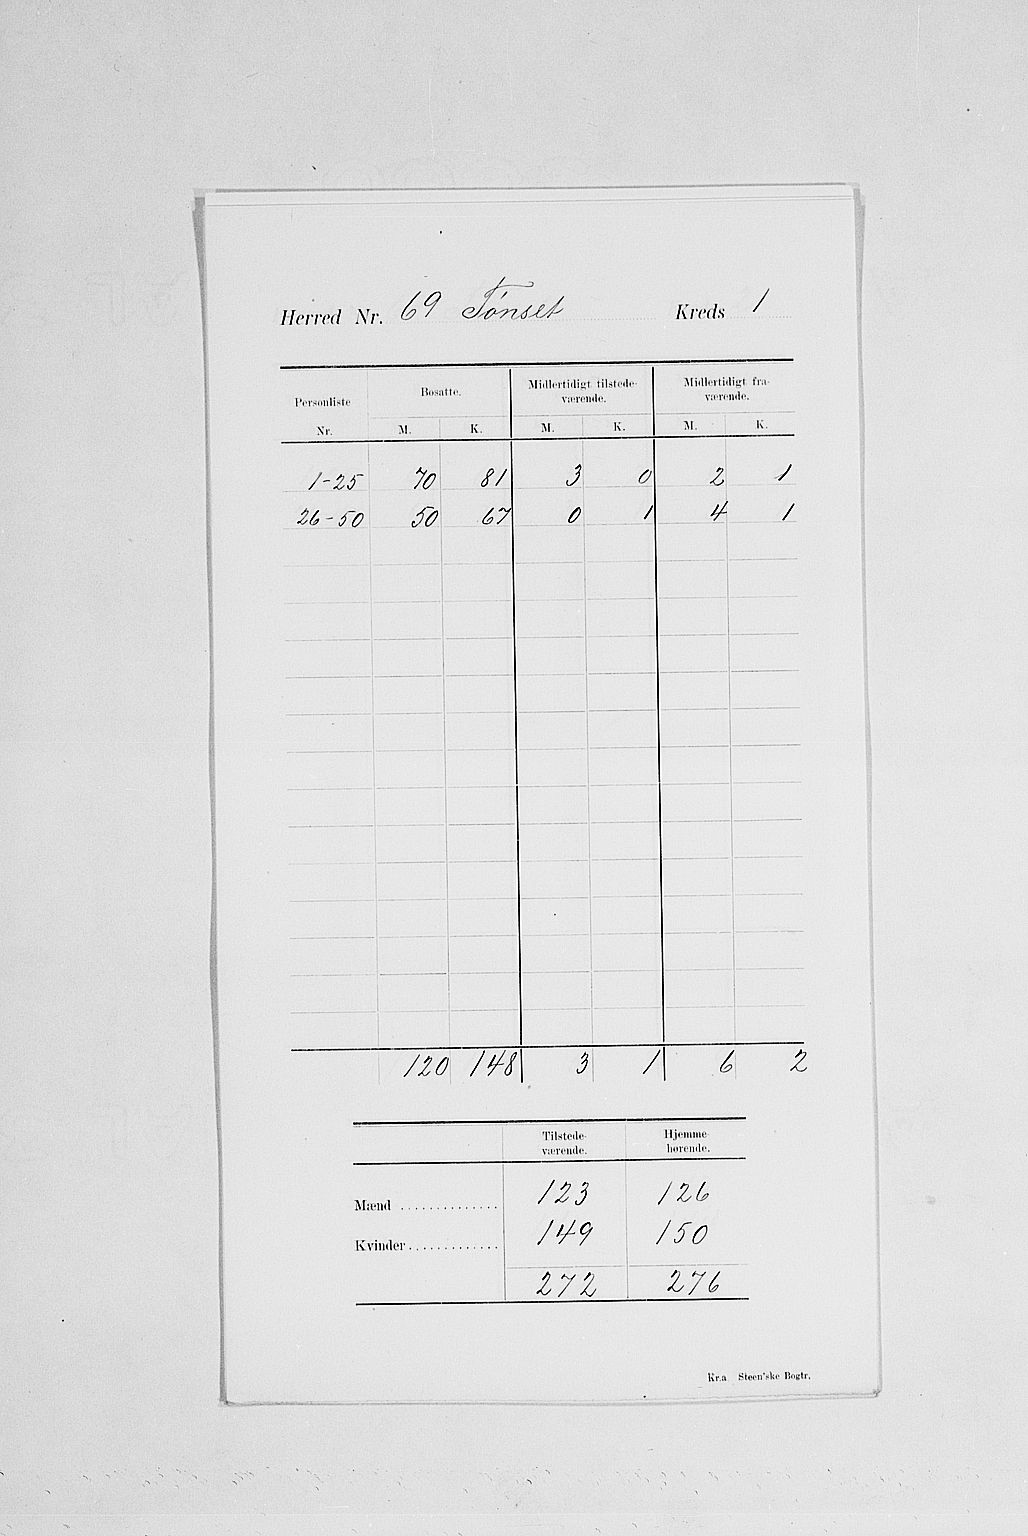 Herred Nr. 69 Tønset Kreds 1
Personliste Nr. Bosatte. Midlertidigt tilstede-værende. Midlertidigt fra-værende.
M. K. M. K. M. K.
1-25 70 81 3 0 2 1
26-50 50 67 0 1 4 1
120 148 3 1 6 2
Tilstede-værende. Hjemme-hørende.
Mænd .............. 123 126
Kvinder ............. 149 150
272 276
Kr.a Steen'ske Bogtr.